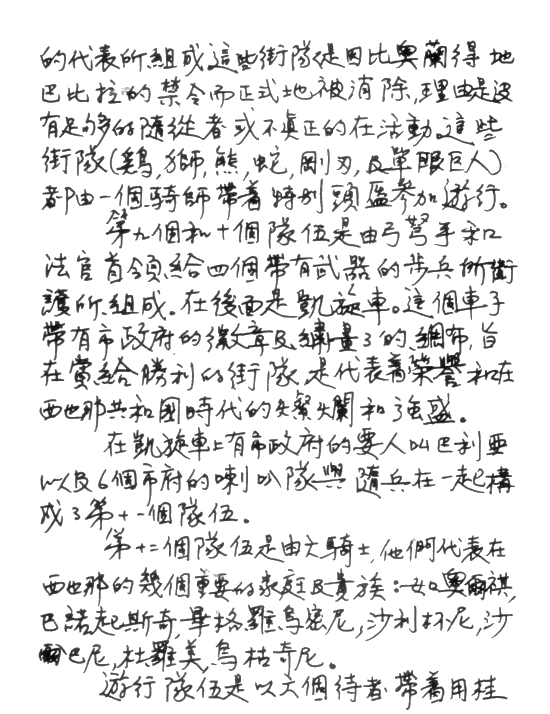 的代表所組成這些街隊從是因比奧蘭得地
巴比拉的禁令而正式地被消除,理由是沒
有足夠多的隨從者或不真正的在活動。這些
街隊(鷄,獅,熊,蛇,剛刃,及單眼巨人)
都由一個騎師帶著特別頭盔參加遊行。
第九個和十個隊伍是由弓弩手和
法官首領,給四個帶有武器的步兵所衛
護所組成。在後面是凱旋車。這個車子
帶有市政府的徽章及繡畫了的綢布,旨
在賞給勝利的街隊,是代表著榮譽和在
西也那共和國時代的燦爛和強盛。
在凱旋車上有市政府的要人叫巴利亞
以及6個市府的喇叭隊與隨兵在一起構
成了第十一個隊伍。
第十二個隊伍是由六騎士,他們代表在
西也那的幾個重要的家庭及貴族:如奧爾祺,
巴諾起斯奇,畢格羅烏密尼,沙利杯尼,沙
巴尼,杜羅美,烏枯奇尼。
遊行隊伍是以六個侍者帶著用桂